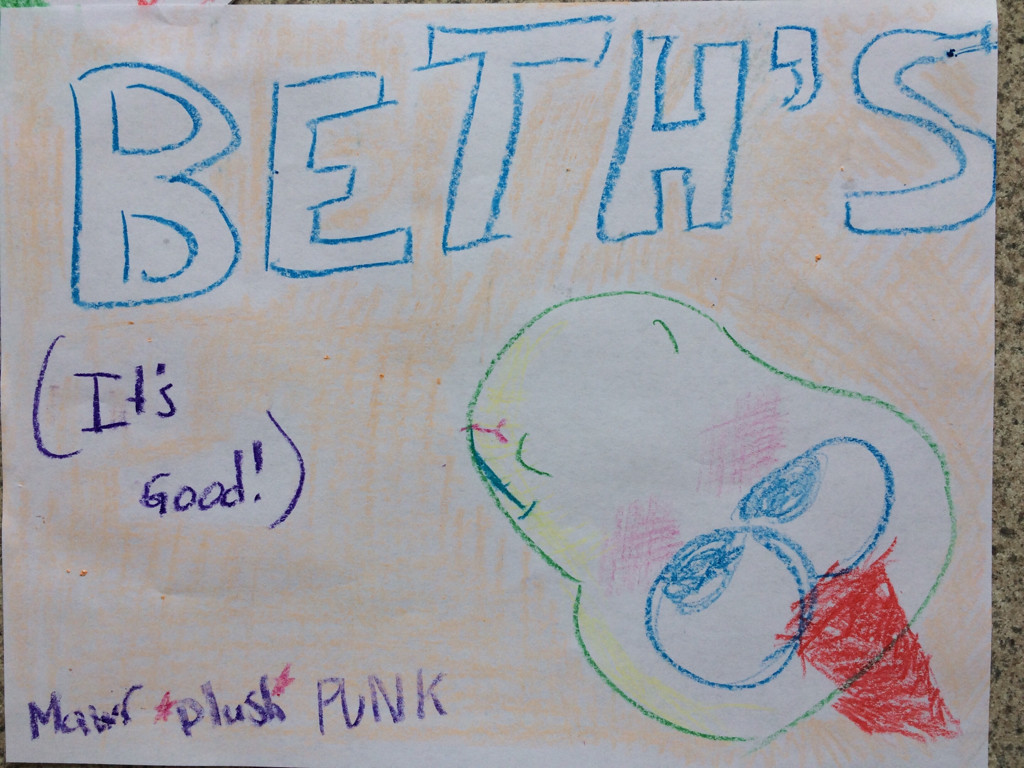 BETH'S
(It's
Good!)
*plush* PUNK